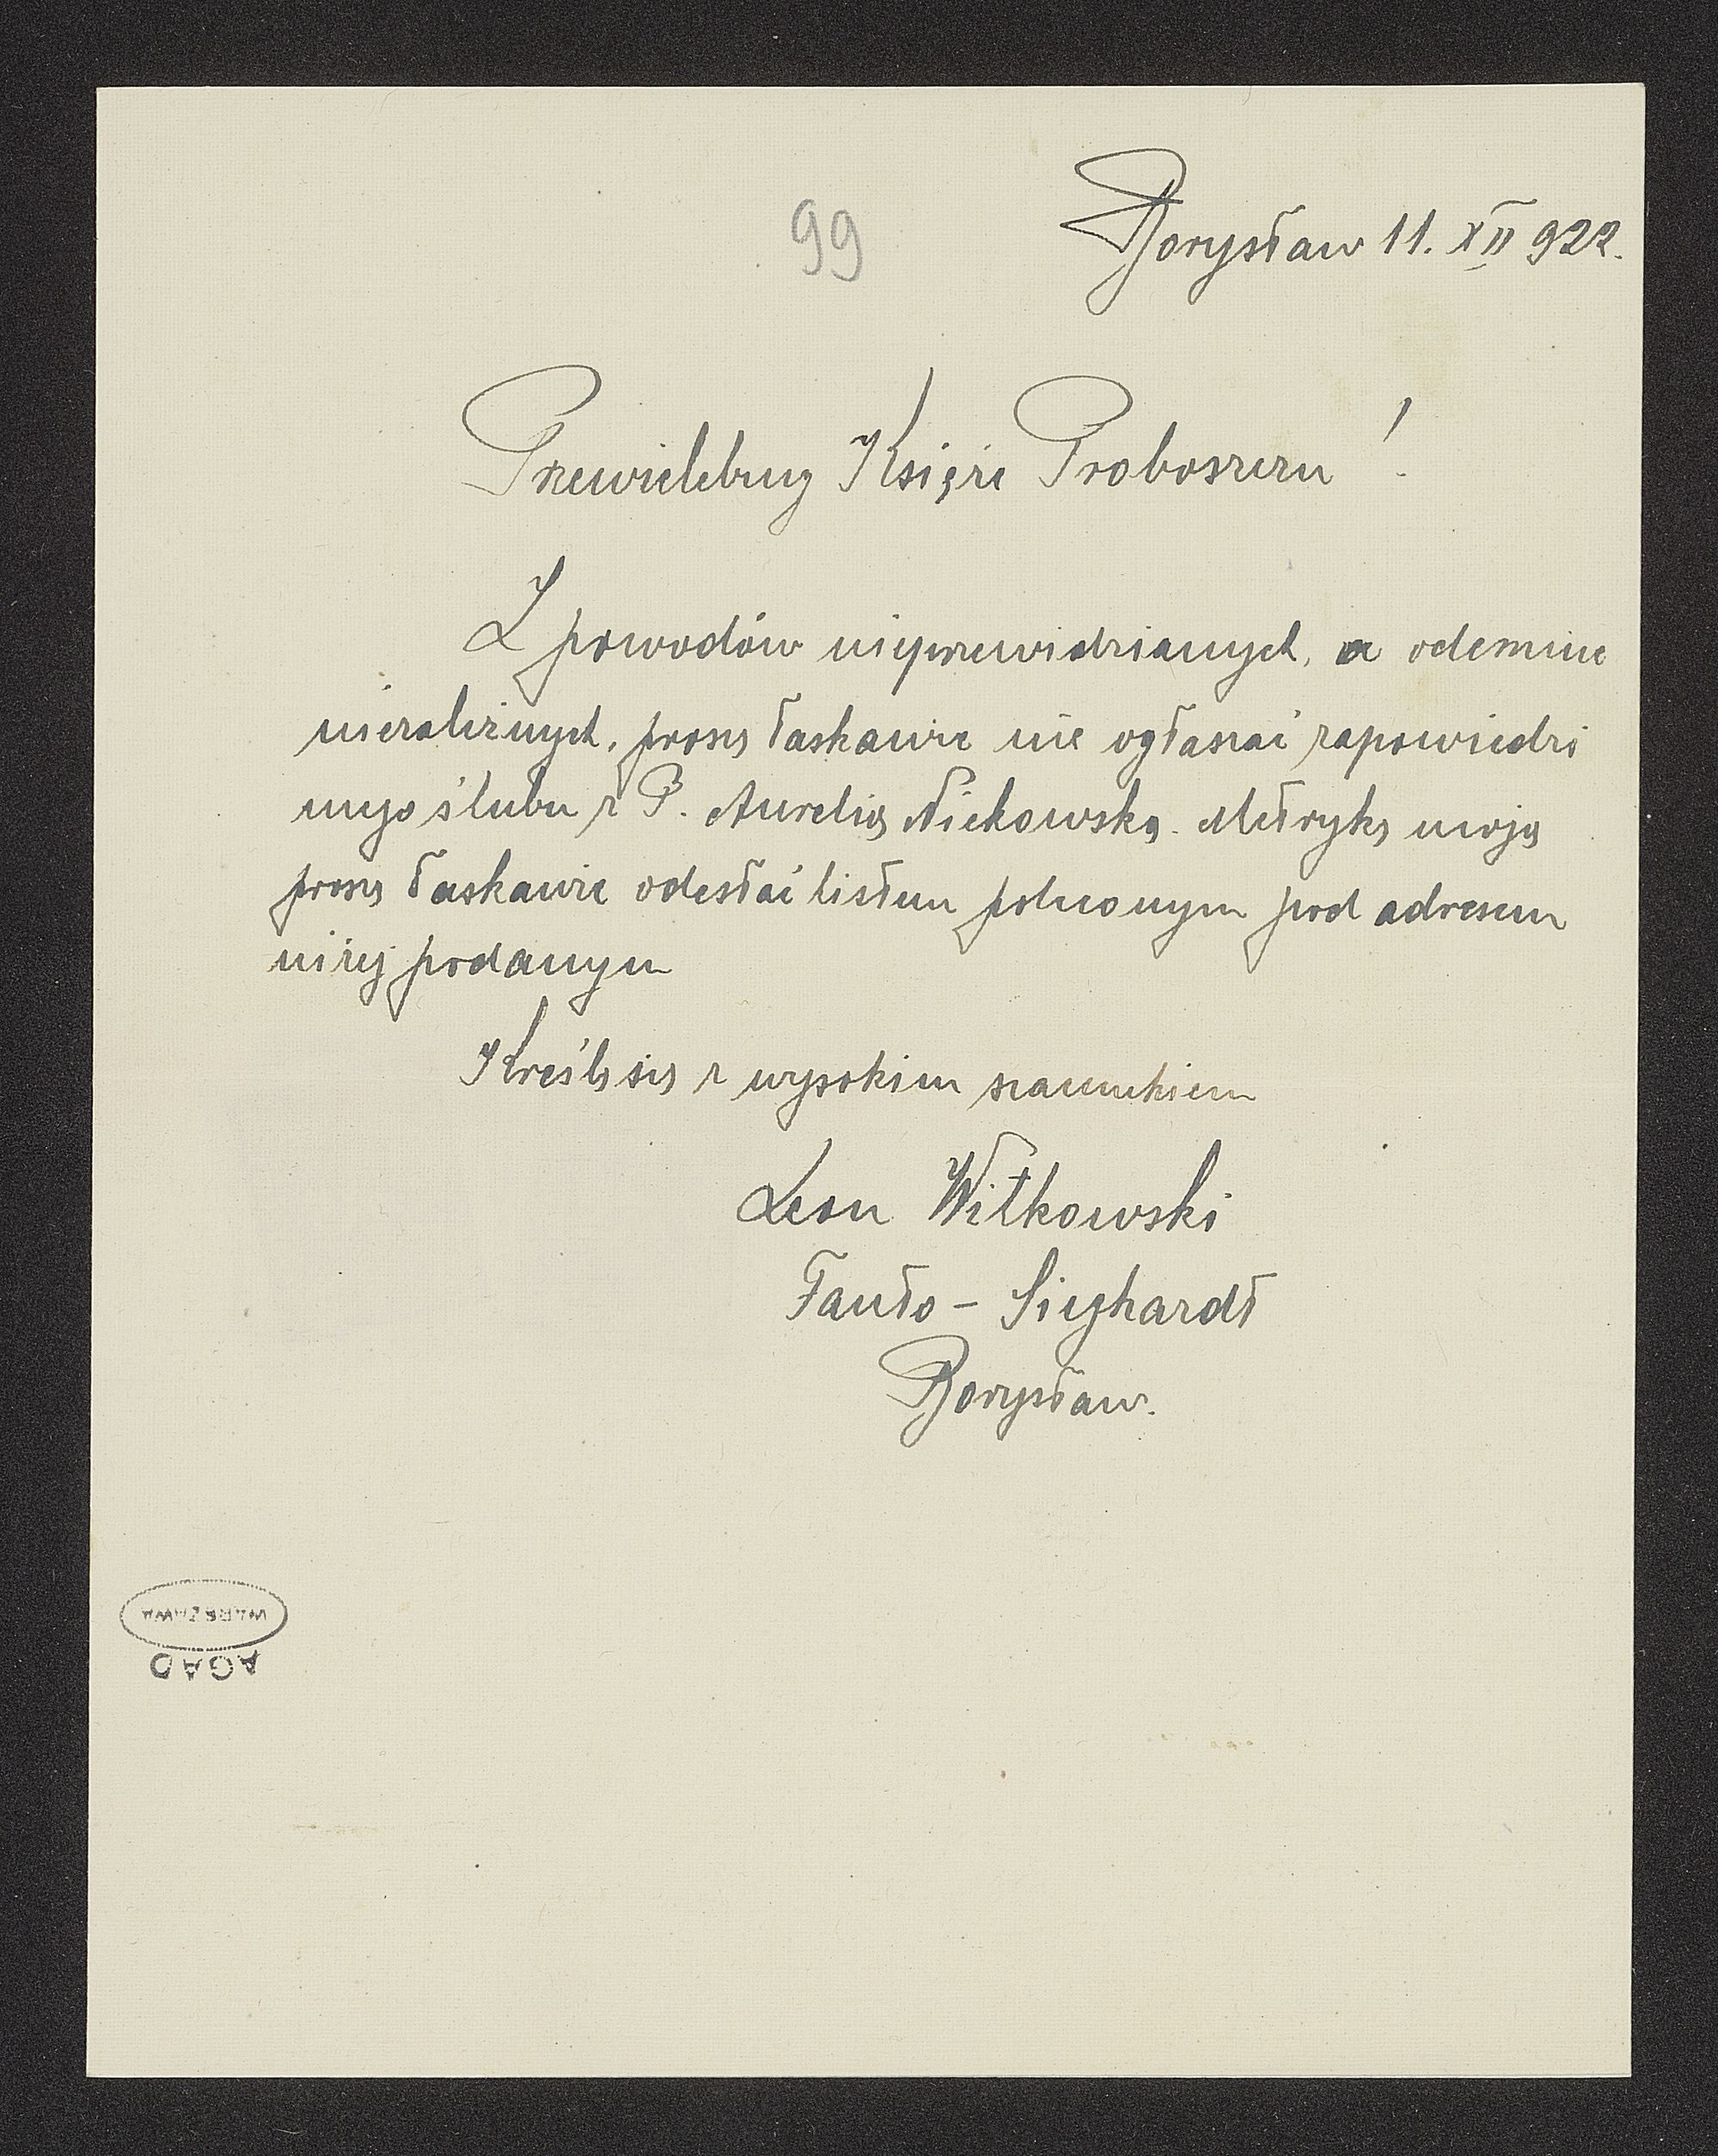 99
Borysław 11. XII 922.
Przewielebny Księże Proboszczu !
Z powodów nieprzewidzianych, a odemnie
niezależnych, proszę łaskawie nie ogłaszać zapowiedzi
mego ślubu z P. Aurelią Metrykę moją
proszę łaskawie odesłać listem poleconym pod adresem
niżej podanym
Kreślę się z wysokim szacunkiem
Leon Witkowski
Fanto - Sieghardt
Borysław.
WARSZAWA
AGAD